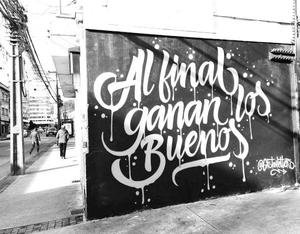 Al final
ganan los
Buenos